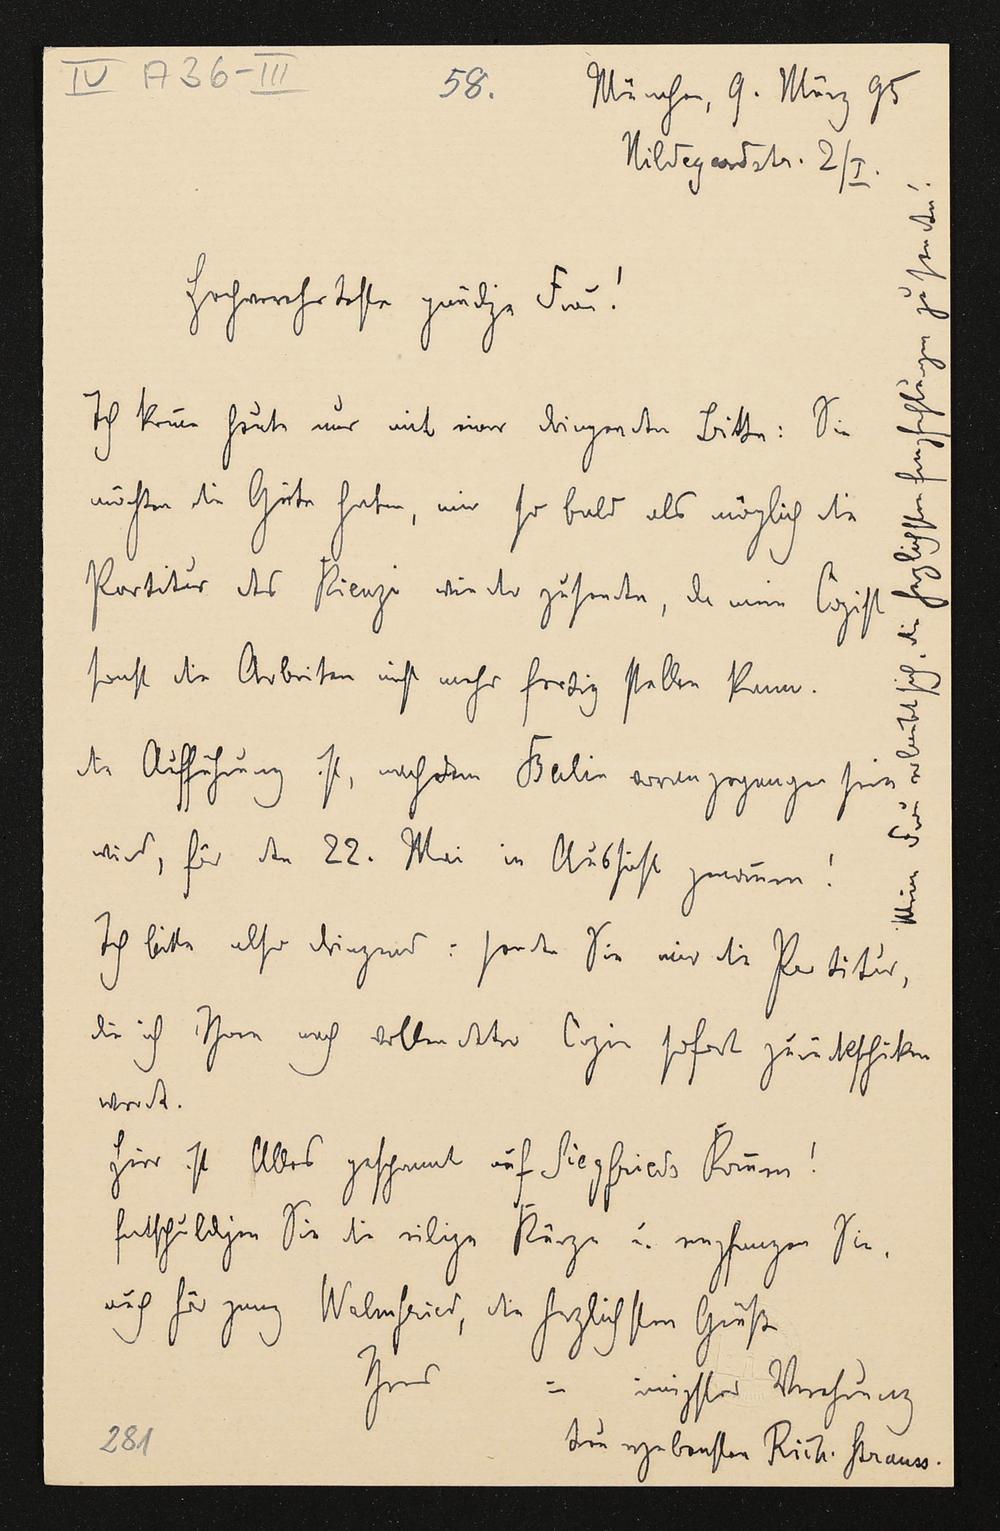 IV A 36-III
58.
München, 9. März 95
Hildegardstr. 2/I.
Hochverehrteste gnädige Frau!
Ich komme heute nur mit einer dringenden Bitte: Sie
möchten die Güte haben, mir so bald als möglich die
Partitur des Rienzi wieder zusenden, da mein Copist
sonst die Arbeiten nicht mehr fertig stellen kann.
die Aufführung ist, nachdem Berlin vorangegangen sein
wird, für den 22. Mai in Aussicht genommen!
Ich bitte also dringend: senden Sie mir die Partitur,
die ich Ihnen nach vollendeter Copie sofort zurückschicken
werde.
Hier ist Alles gespannt auf Siegfrieds Kommen!
Entschuldigen Sie die eilige Kürze u. empfangen Sie,
auch für ganz Wahnfried, die herzlichsten Grüße
Ihres = innigster Verehrung
treu ergebensten Rich. Strauss.
Meine Frau erlaubt sich, die herzlichsten Empfehlungen zu senden!
281